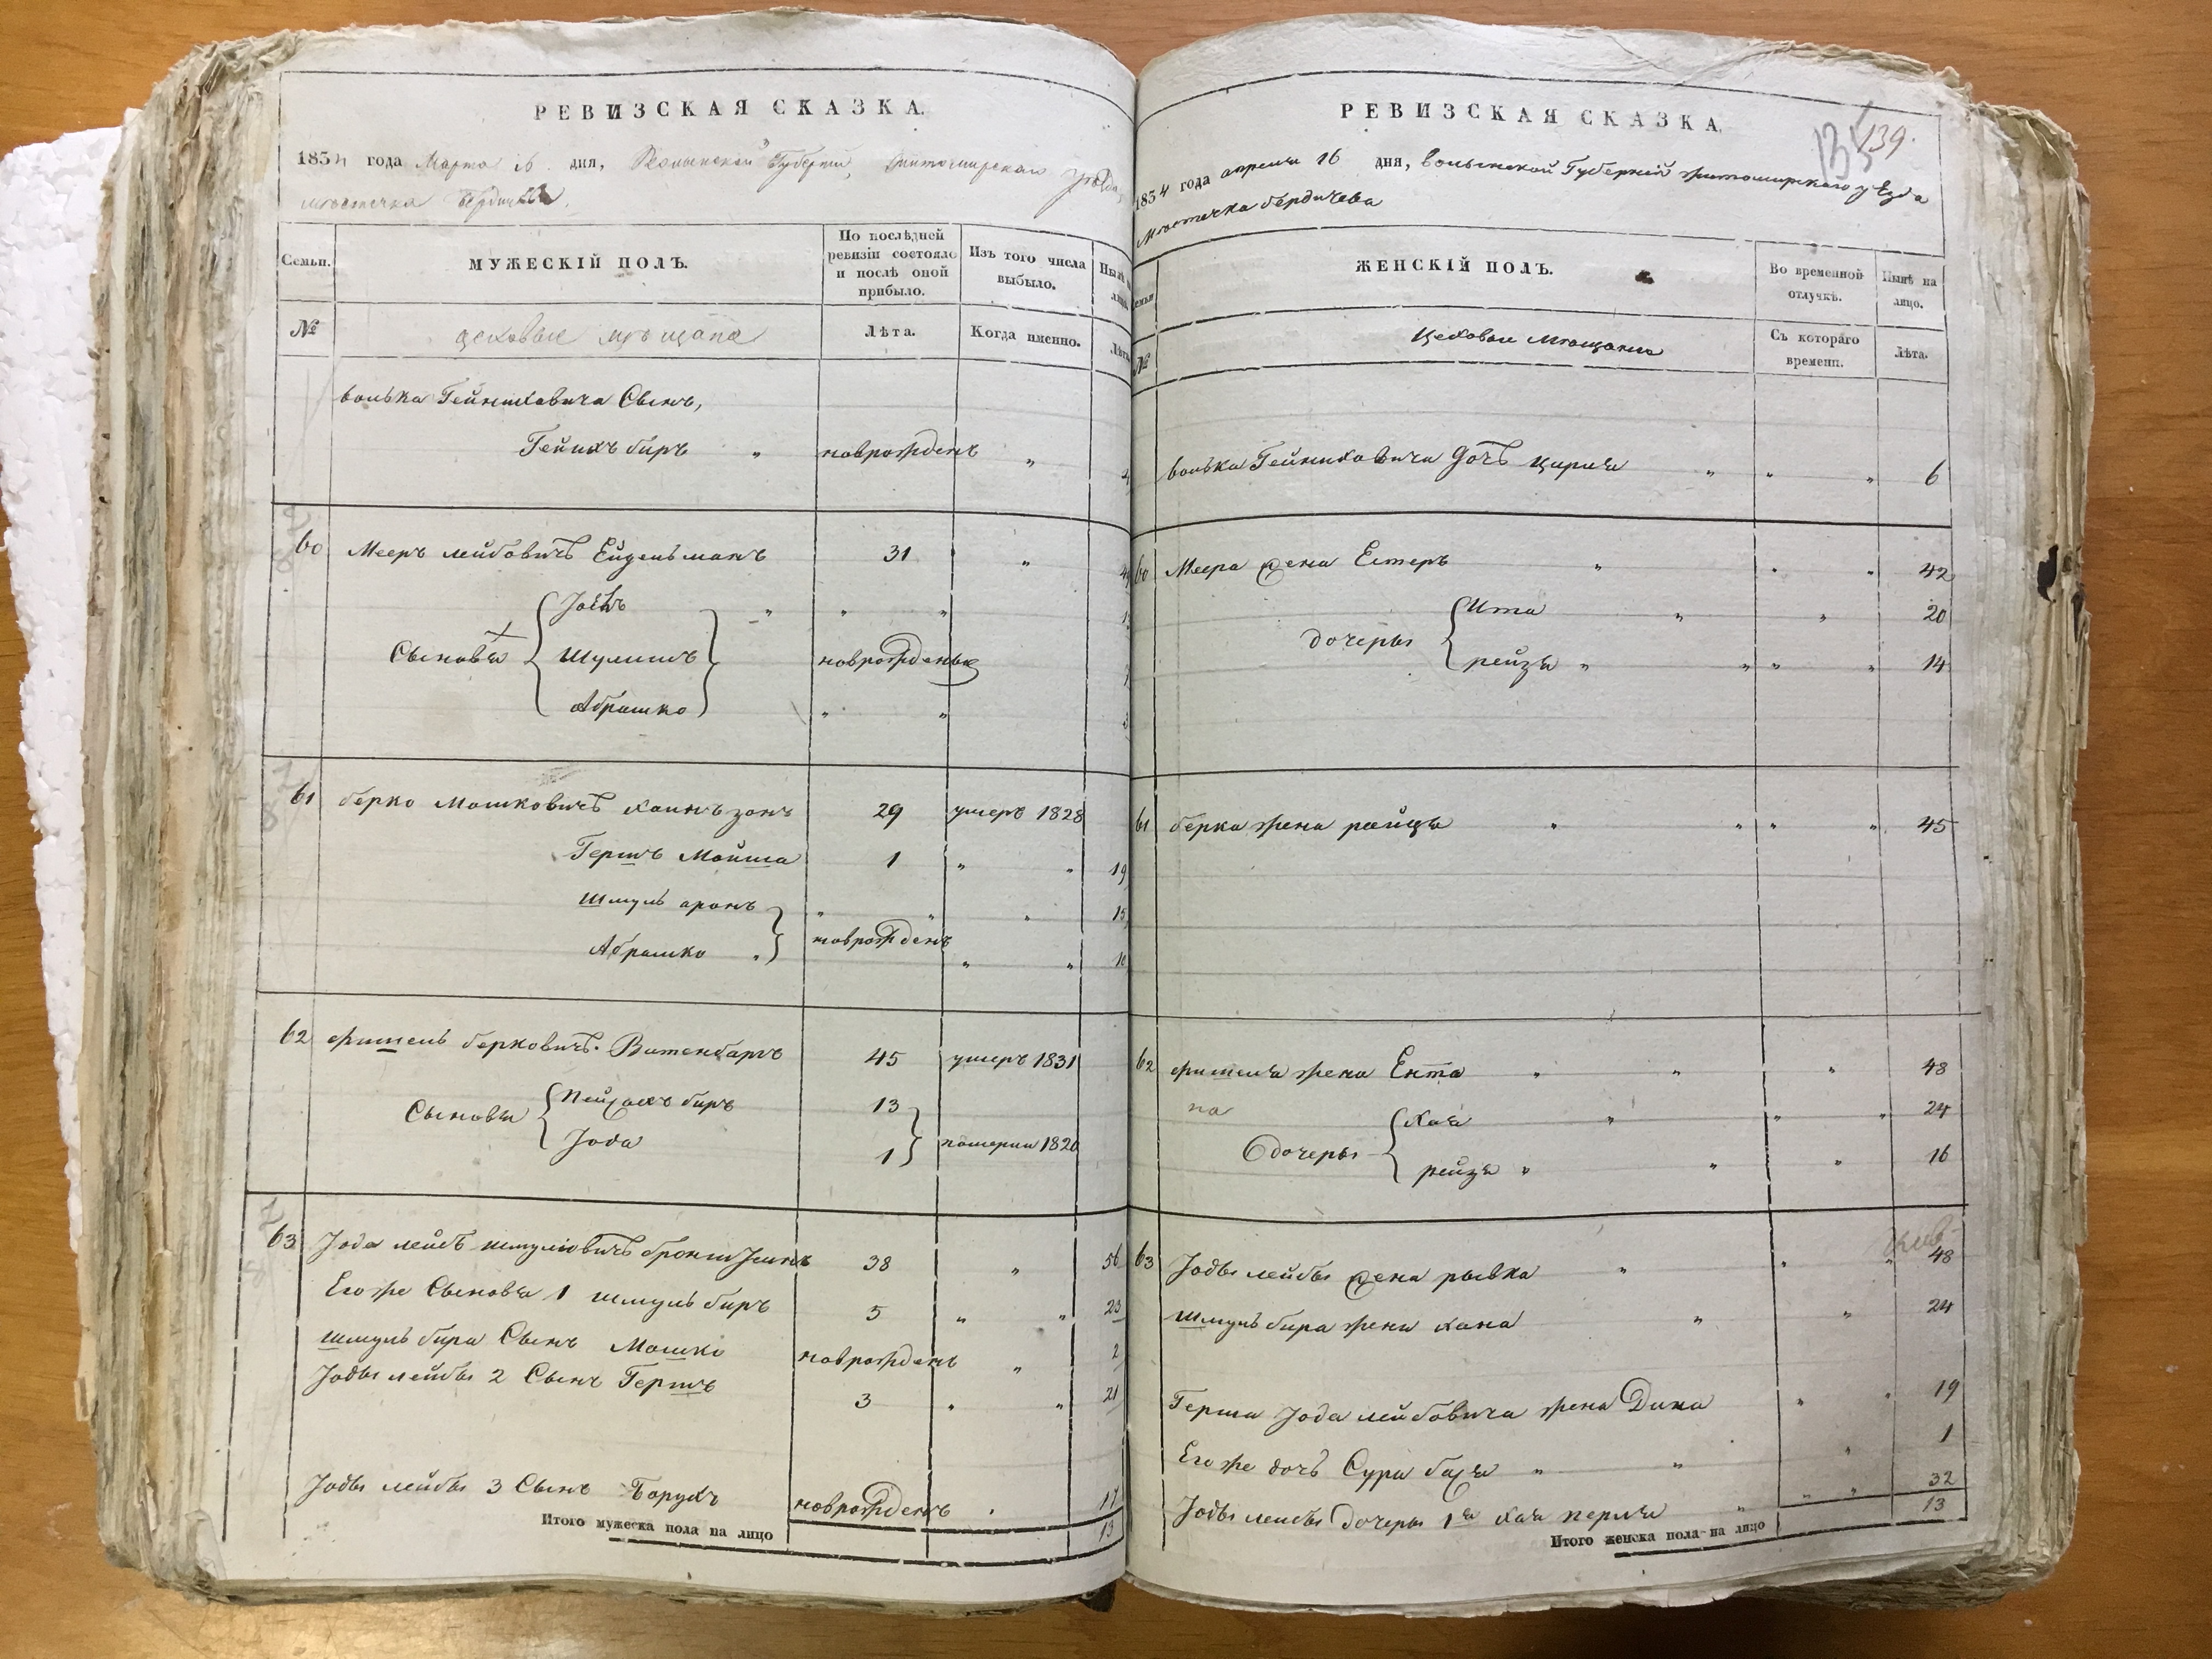 РЕВИЗСКАЯ СКАЗКА.
1834 года Марта 16 дня, Волынской Губернiи, Житомирскаго уѣзда,
мѣстечка Бердичева.
Семьи.
МУЖЕСКIЙ ПОЛЪ.
По послѣдней ревизiи состояло и послѣ оной прибыло.
Изъ того числа выбыло.
№
цеховые мѣщане
Лѣта.
Когда именно.
Лѣта
волька Гейниховича Сынъ,
Гейнихъ биръ " новрожденъ "
60 Мееръ лейбовичъ Ейдельманъ 31 "
Сыновья
Шулимъ новрожденые
Абрашко " "
61 берко Мошковичъ 29 умеръ 1828
Гершъ Мойша 1 " " 19
Шмуль аронъ " " " 15
Абрашко " новрожденъ " "
62 Фишель берковичъ Витенбаръ 45 умеръ 1831
Сыновья Пейсахъ биръ 13
Іода 1 померли 1820
63 Іода лейбъ шмулiовичъ бронштеинъ 38 " 56
Его же Сыновья 1 шмуль биръ 5 " " 23
шмуль бира Сынъ Мошко новрожденъ " 2
Іоды лейбы 2 Сынъ Гершъ 3 " " 21
Іоды лейбы 3 Сынъ Борухъ новрожденъ " 17
Итого мужеска пола на лицо 13
РЕВИЗСКАЯ СКАЗКА.
135 139.
1834 года апреля 16 дня, волынской Губернiй житомирскаго уЕзда
мѣстечка бердичева
ЖЕНСКIЙ ПОЛЪ.
Во временной отлучкѣ.
Нынѣ на лицо.
№
Цеховые Мѣщане
Съ котораго времени.
Лѣта.
волька Гейниховича дочъ цирля " " " 6
60 Меера жена Естеръ " " " 42
дочеры Ита " " 20
рейзя " " " " 14
61 берка жена рейзя " " " " 45
62 Фишеля жена Ента " " " 48
дочеры Хая " " " 24
рейзя " " " 16
63 Іоды лейбы жена рывка " " " 48
шмуль бира жена хана " " 24
Герша Іода лейбовича жена Дина " " 19
Его же дочъ Сура бася " " " 1
Іоды лейбы дочеры 1я хая перля " " " 32
Итого женска пола на лицо 13